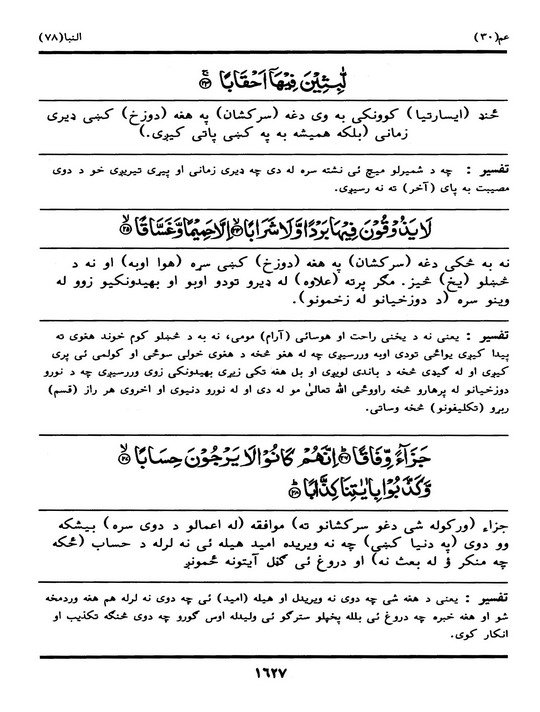 عم(٣٠) النبا(٧٨)
لّٰبِثِيْنَ فِيْهَآ اَحْقَابًا ۚ ﴿٢٣﴾
ځنډ (ايسارتيا) کوونکي به وي دغه (سرکشان) په هغه (دوزخ) کښي ډيري
زماني (بلکه هميشه به په کښي پاتي کيږي.)
تفسير : چه د شميرلو ميڅ ئي نشته سره له دي چه ډيري زماني او پيړي تيريږي خو د دوي
مصيبت به پاي (آخر) ته نه رسيږي.
لَا يَذُوْقُوْنَ فِيْهَا بَرْدًا وَّلَا شَرَابًا ﴿٢٤﴾ اِلَّا حَمِيْمًا وَّغَسَّاقًا ﴿٢٥﴾
نه به څکي دغه (سرکشان) په هغه (دوزخ) کښي سړه (هوا اوبه) او نه د
څښلو (يخ) څيز. مګر پرته (علاوه) له ډيرو تودو اوبو او بهيدونکيو زوو له
وينو سره (د دوزخيانو له زخمونو).
تفسير : يعني نه د يخني راحت او هوسائي (آرام) مومي، نه به د څښلو کوم خوند هغوي ته
پيدا کيږي يواځي تودي اوبه وررسيږي چه له هغو څخه د هغوي خولي سوځي او کولمي ئي پري
کيږي او له ګيډي څخه د باندي لويږي او بل هغه تکي زيړي بهيدونکي زوي وررسيږي چه د نورو
دوزخيانو له پرهارو څخه راووځي الله تعالىٰ مو له دي او له نورو دنيوي او اخروي هر راز (قسم)
ربړو (تکليفونو) څخه وساتي.
جَزَآءً وِّفَاقًا ﴿٢٦﴾ اِنَّهُمْ كَانُوْا لَا يَرْجُوْنَ حِسَابًا ﴿٢٧﴾
وَّكَذَّبُوْا بِاٰيٰتِنَا كِذَّابًا ﴿٢٨﴾
جزاء (ورکوله شي دغو سرکشانو ته) موافقه (له اعمالو د دوي سره) بيشکه
وو دوي (په دنيا کښي) چه نه ويريده اميد هيله ئي نه لرله د حساب (ځکه
چه منکر ؤ له بعث نه) او دروغ ئي ګڼل آيتونه ځمونږ
تفسير : يعني د هغه شي چه دوي نه ويريدل او هيله (اميد) ئي چه دوي نه لرله هم هغه وردمخه
شو او هغه خبره چه دروغ ئي بلله پخپلو سترګو ئي وليدله اوس ګورو چه دوي څنګه تکذيب او
انکار کوي.
١٦٢٧